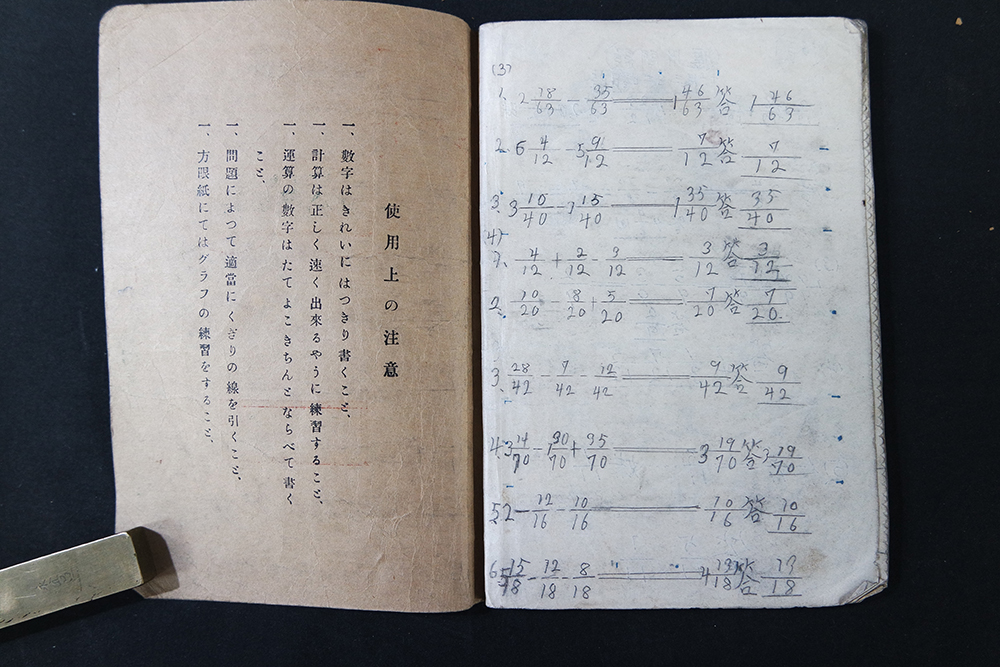 使用上の注意
一、數字はきれいにはつきり書くこと、
一、計算は正しく速く出來るやうに練習すること、
一、運算の數字はたてよこきちんとならべて書く
こと、
一、問題によつて適當にくぎりの線を引くこと、
一、方眼紙にてはグラフの練習をすること、
(3)
1. 2 18/63 - 35/63 = 1 46/63 答 1 46/63
2. 6 4/12 - 5 9/12 = 7/12 答 7/12
3. 3 10/40 - 1 15/40 = 1 35/40 答 35/40
(4)
1. 4/12 + 2/12 - 3/12 3/12 答 3/12
2. 10/20 - 8/20 + 5/20 = 7/20 答 7/20
3. 28/42 - 7/42 - 12/42 = 9/42 答 9/42
4. 3 14/70 - 1 30/70 + 95/70 = 3 19/70 答 3 19/70
5. 2 - 12/16 - 10/16 = 10/16 答 10/16
6. 5 15/18 - 12/18 - 8/18 = 4 13/18 答 13/18